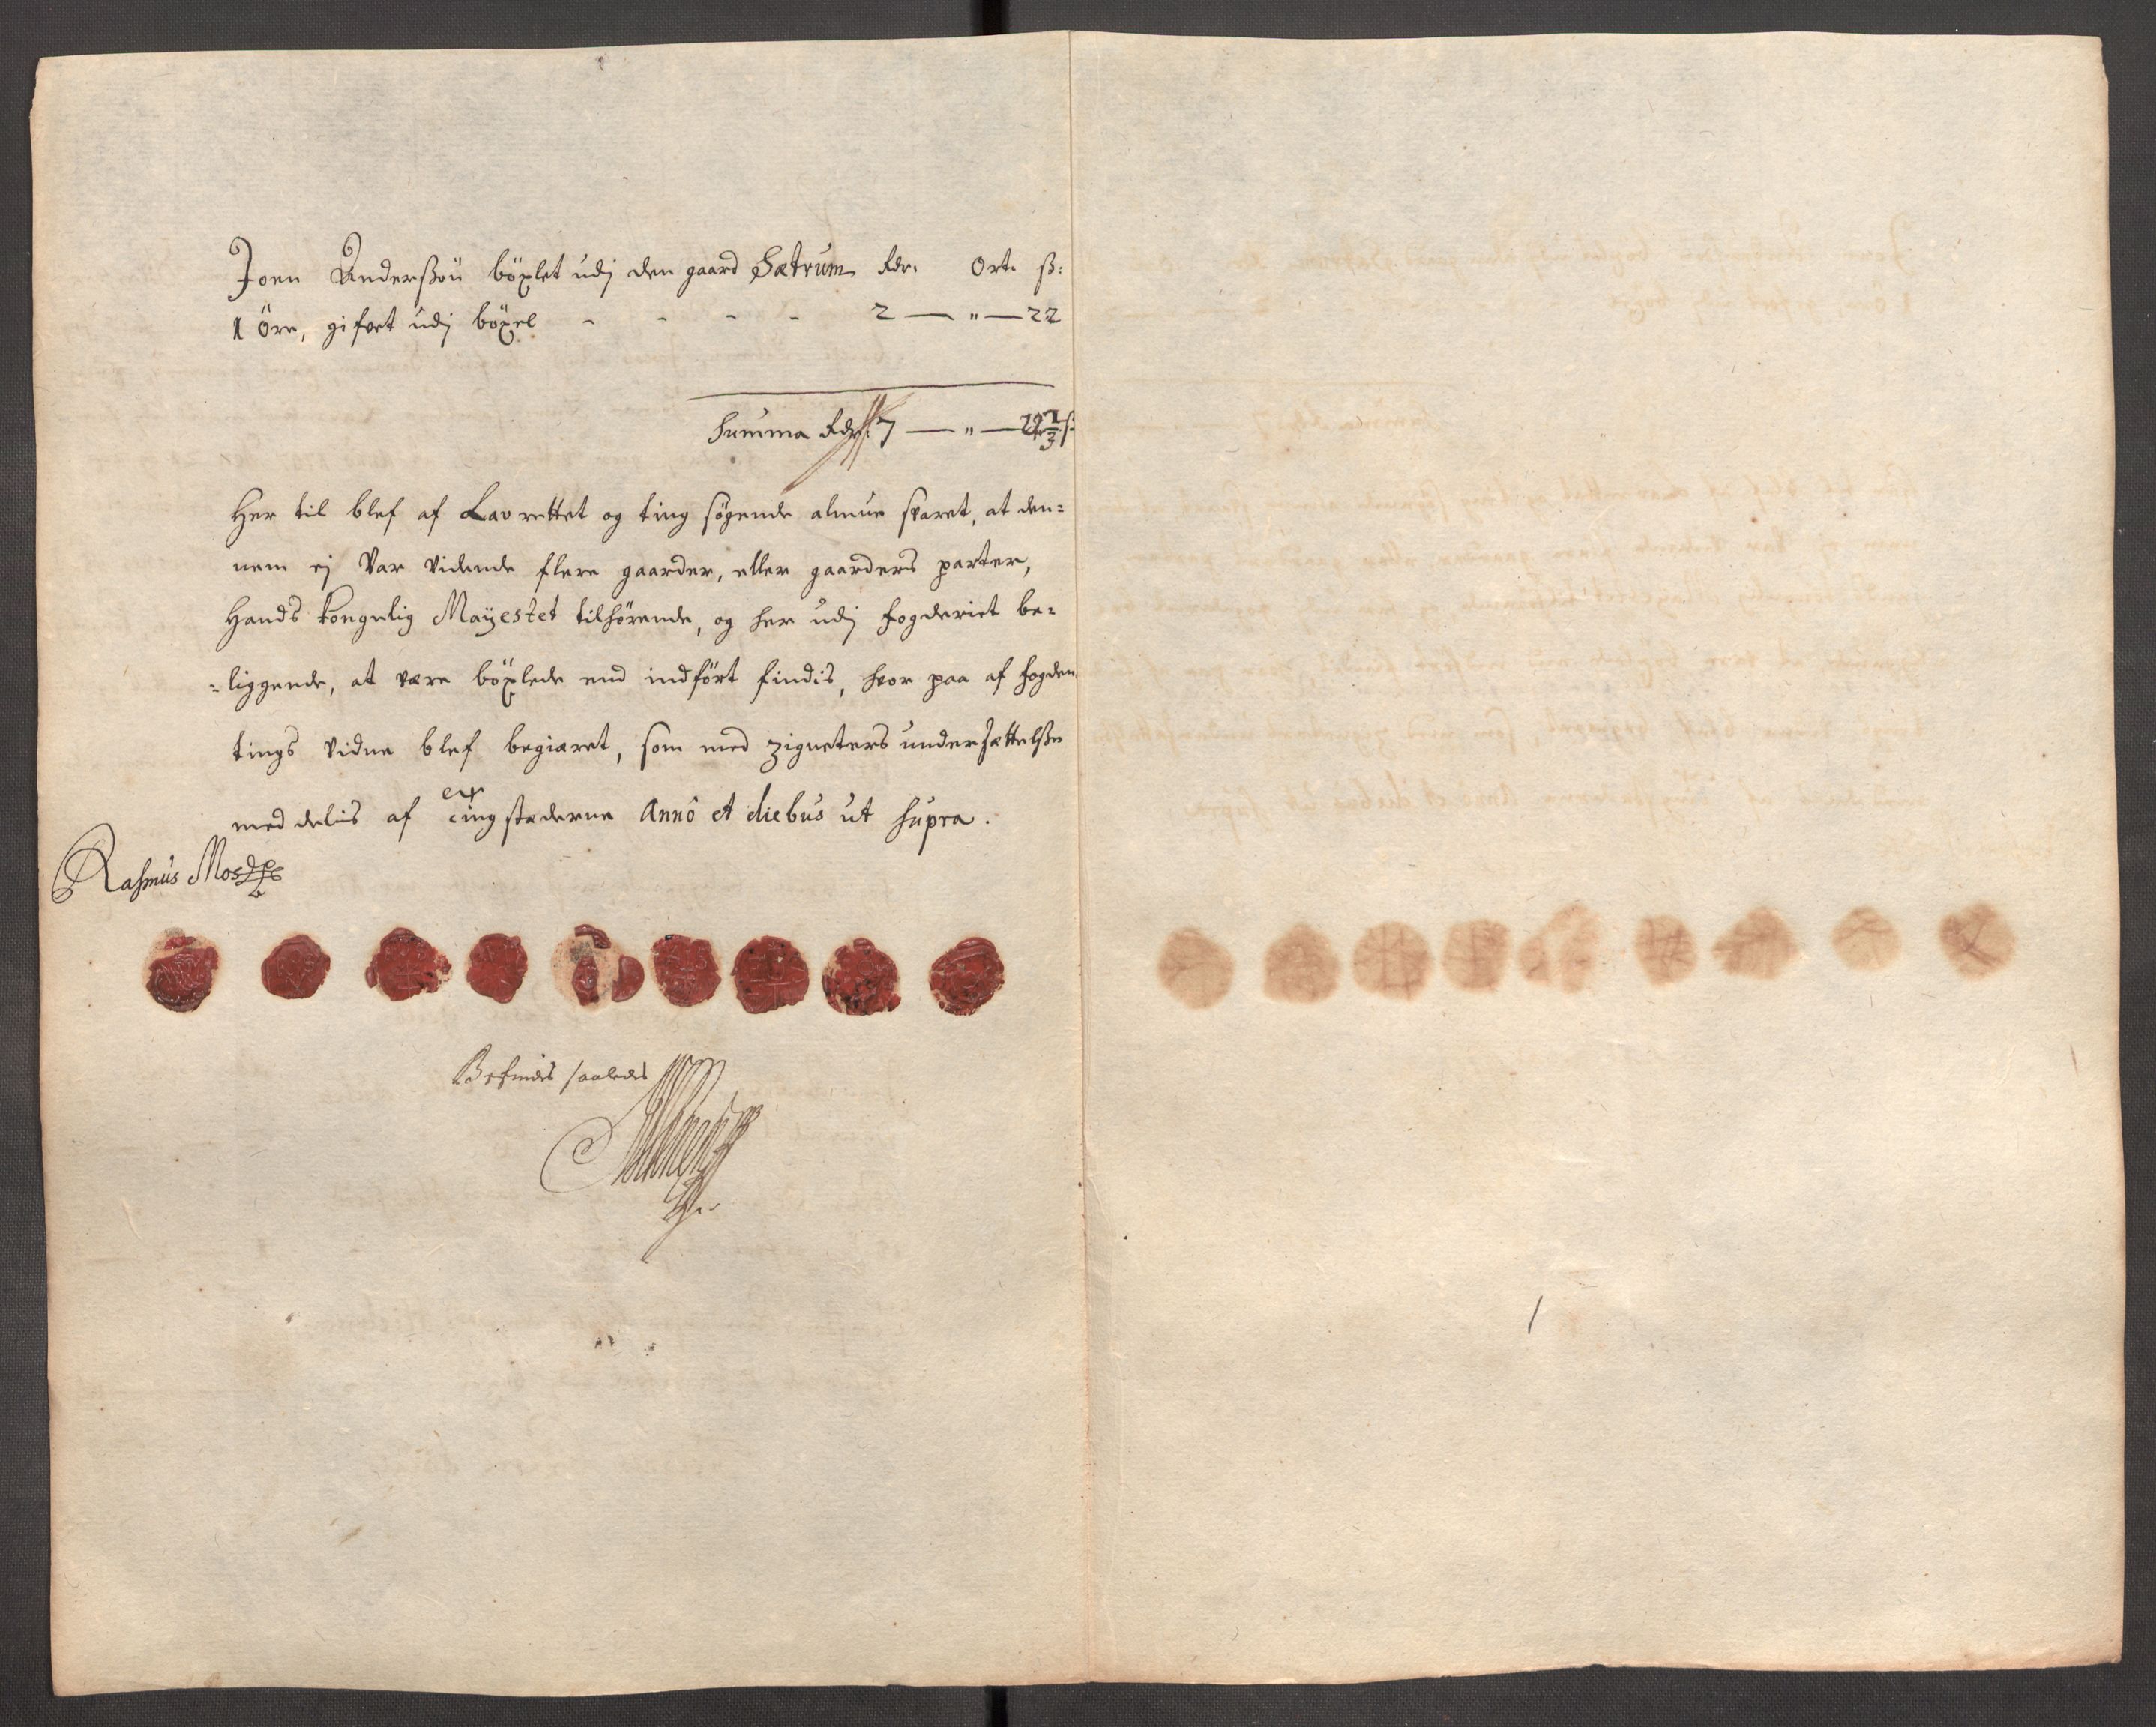 Joen Anderßøn böxlet udj den gaard Sætrum Rdr. Ort. ß:
1 Öre, gifvet udj böxel - - - - 2 — " — 22
Summa Rdr. 7 — " —
Her til blef af Lavrettet og ting søgende almue svaret, at den=
nem ej var vidende flere gaarder, eller gaarders parter,
Hands Kongelig Mayestet tilhørende, og her udj fogderiet be=
=liggende, at være böxlede end indført findis, hvor paa af fogden
tings vidne blef begiæret, som med zigneters underSættelße
med delis af tingstæderne Anno et diebus ut supra.
Rasmus
Befindes saaledes